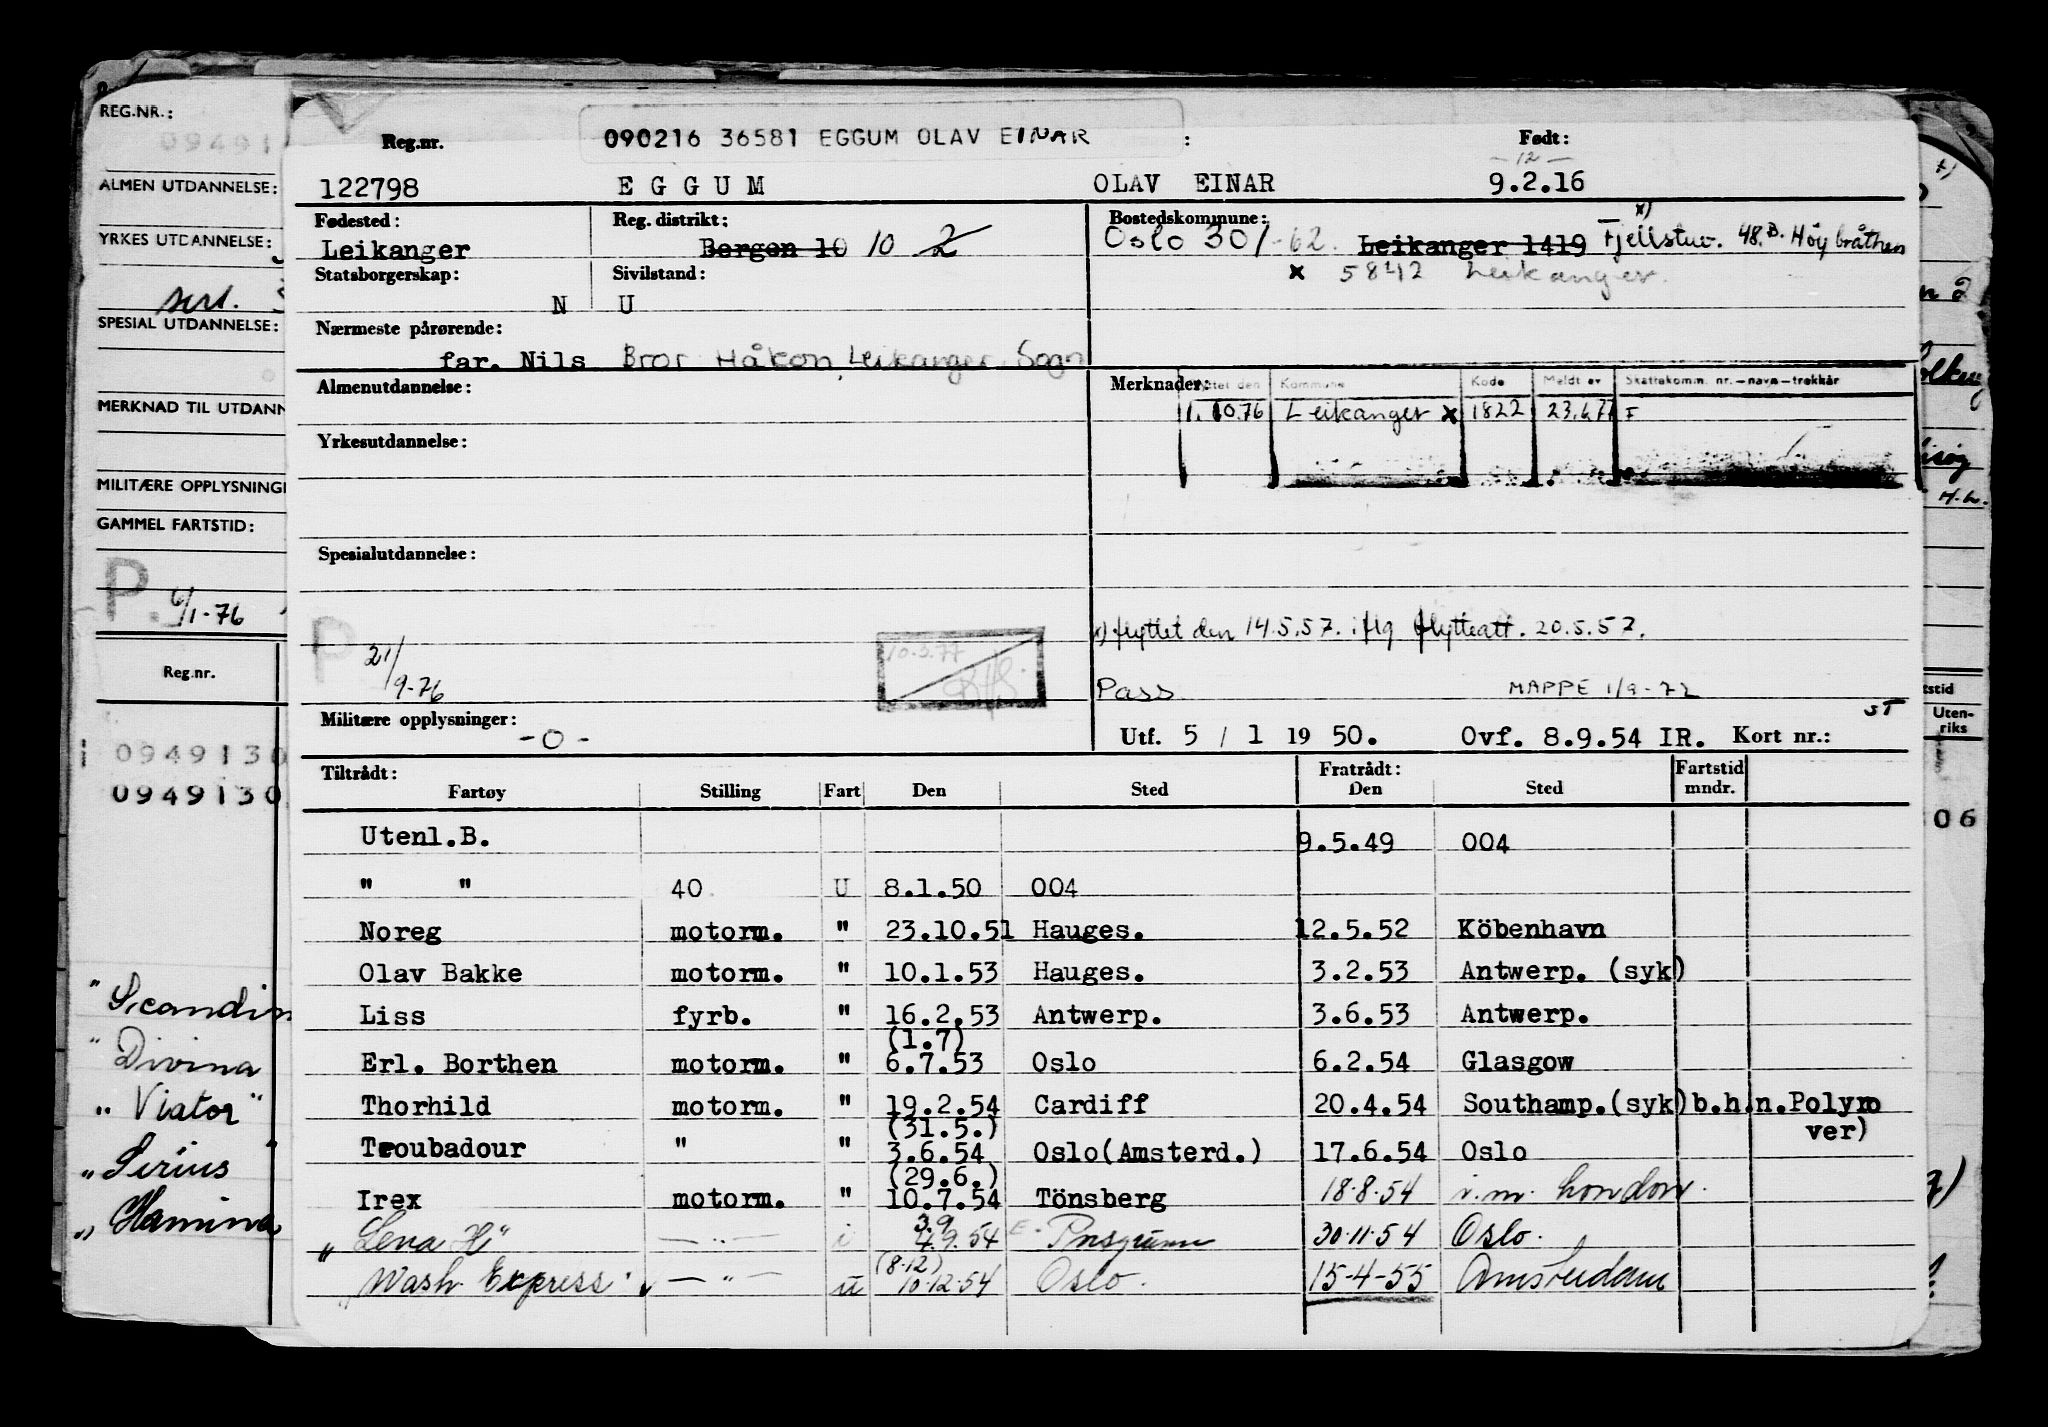 REG.NR.:
09491
ALMEN UTDANNELSE:
YRKES UTDANNELSE:
SPESIAL UTDANNELSE:
MERKNAD TIL UTDANN
MILITÆRE OPPLYSNINGE
GAMMEL FARTSTID:
P.
6/1-76
Reg.nr.
0949130
0949130
" Scandin
" Divina
" Viator"
" Sirius "
" Hamina
Reg.nr. 090216 36581 EGGUM OLAV EINAR : Født:
— 12 —
122798 EGGUM OLAV EINAR 9.2.16
Fødested: Reg. distrikt: Bostedskommune: x)
Leikanger Bergen 10 10 2 Oslo 301-62. Leikanger 1419 Fjellstuv. 48.B. Høybråthen
Statsborgerskap: Sivilstand: x 5842 Leikanger.
N U
Nærmeste pårørende:
far. Nils Bror Håkon, Leikanger, Sogn
Almenutdannelse: Merknader: ttet den Kommune Kode Meldt av Skattekomm. nr.–navn–trekkår
1.10.76 Leikanger x 1822 23.6.77 F
Yrkesutdannelse:
Spesialutdannelse:
x) flyttet den 14.5.57. iflg flytteatt. 20.5.57.
P 21/9-76 10.3.77
Pass MAPPE 1/9-72
ST
Militære opplysninger: -0- Utf. 5 / 1 19 50. Ovf. 8.9.54 IR. Kort nr.:
Tiltrådt: Fratrådt: Fartstid
Fartøy Stilling Fart Den Sted Den Sted mndr.
Utenl.B. 9.5.49 004
" " 40 U 8.1.50 004
Noreg motorm. " 23.10.51 Hauges. 12.5.52 Köbenhavn
Olav Bakke motorm. " 10.1.53 Hauges. 3.2.53 Antwerp. (syk)
Liss fyrb. " 16.2.53 Antwerp. 3.6.53 Antwerp.
(1.7)
Erl. Borthen motorm. " 6.7.53 Oslo 6.2.54 Glasgow
Thorhild motorm. " 19.2.54 Cardiff 20.4.54 Southamp.(syk)b.h.n.Polyro
(31.5.) ver)
Troubadour " " 3.6.54 Oslo(Amsterd.) 17.6.54 Oslo
(29.6.)
Irex motorm. " 10.7.54 Tönsberg 18.8.54 i.m. London.
3.9
"Lena H" — " — i 4.9.54 E. Prsgrunn 30.11.54 Oslo.
(8.12)
"Wash. Express" — " — u 10.12.54 Oslo. 15-4-55 Amsterdam
tstid
Uten-
riks
06